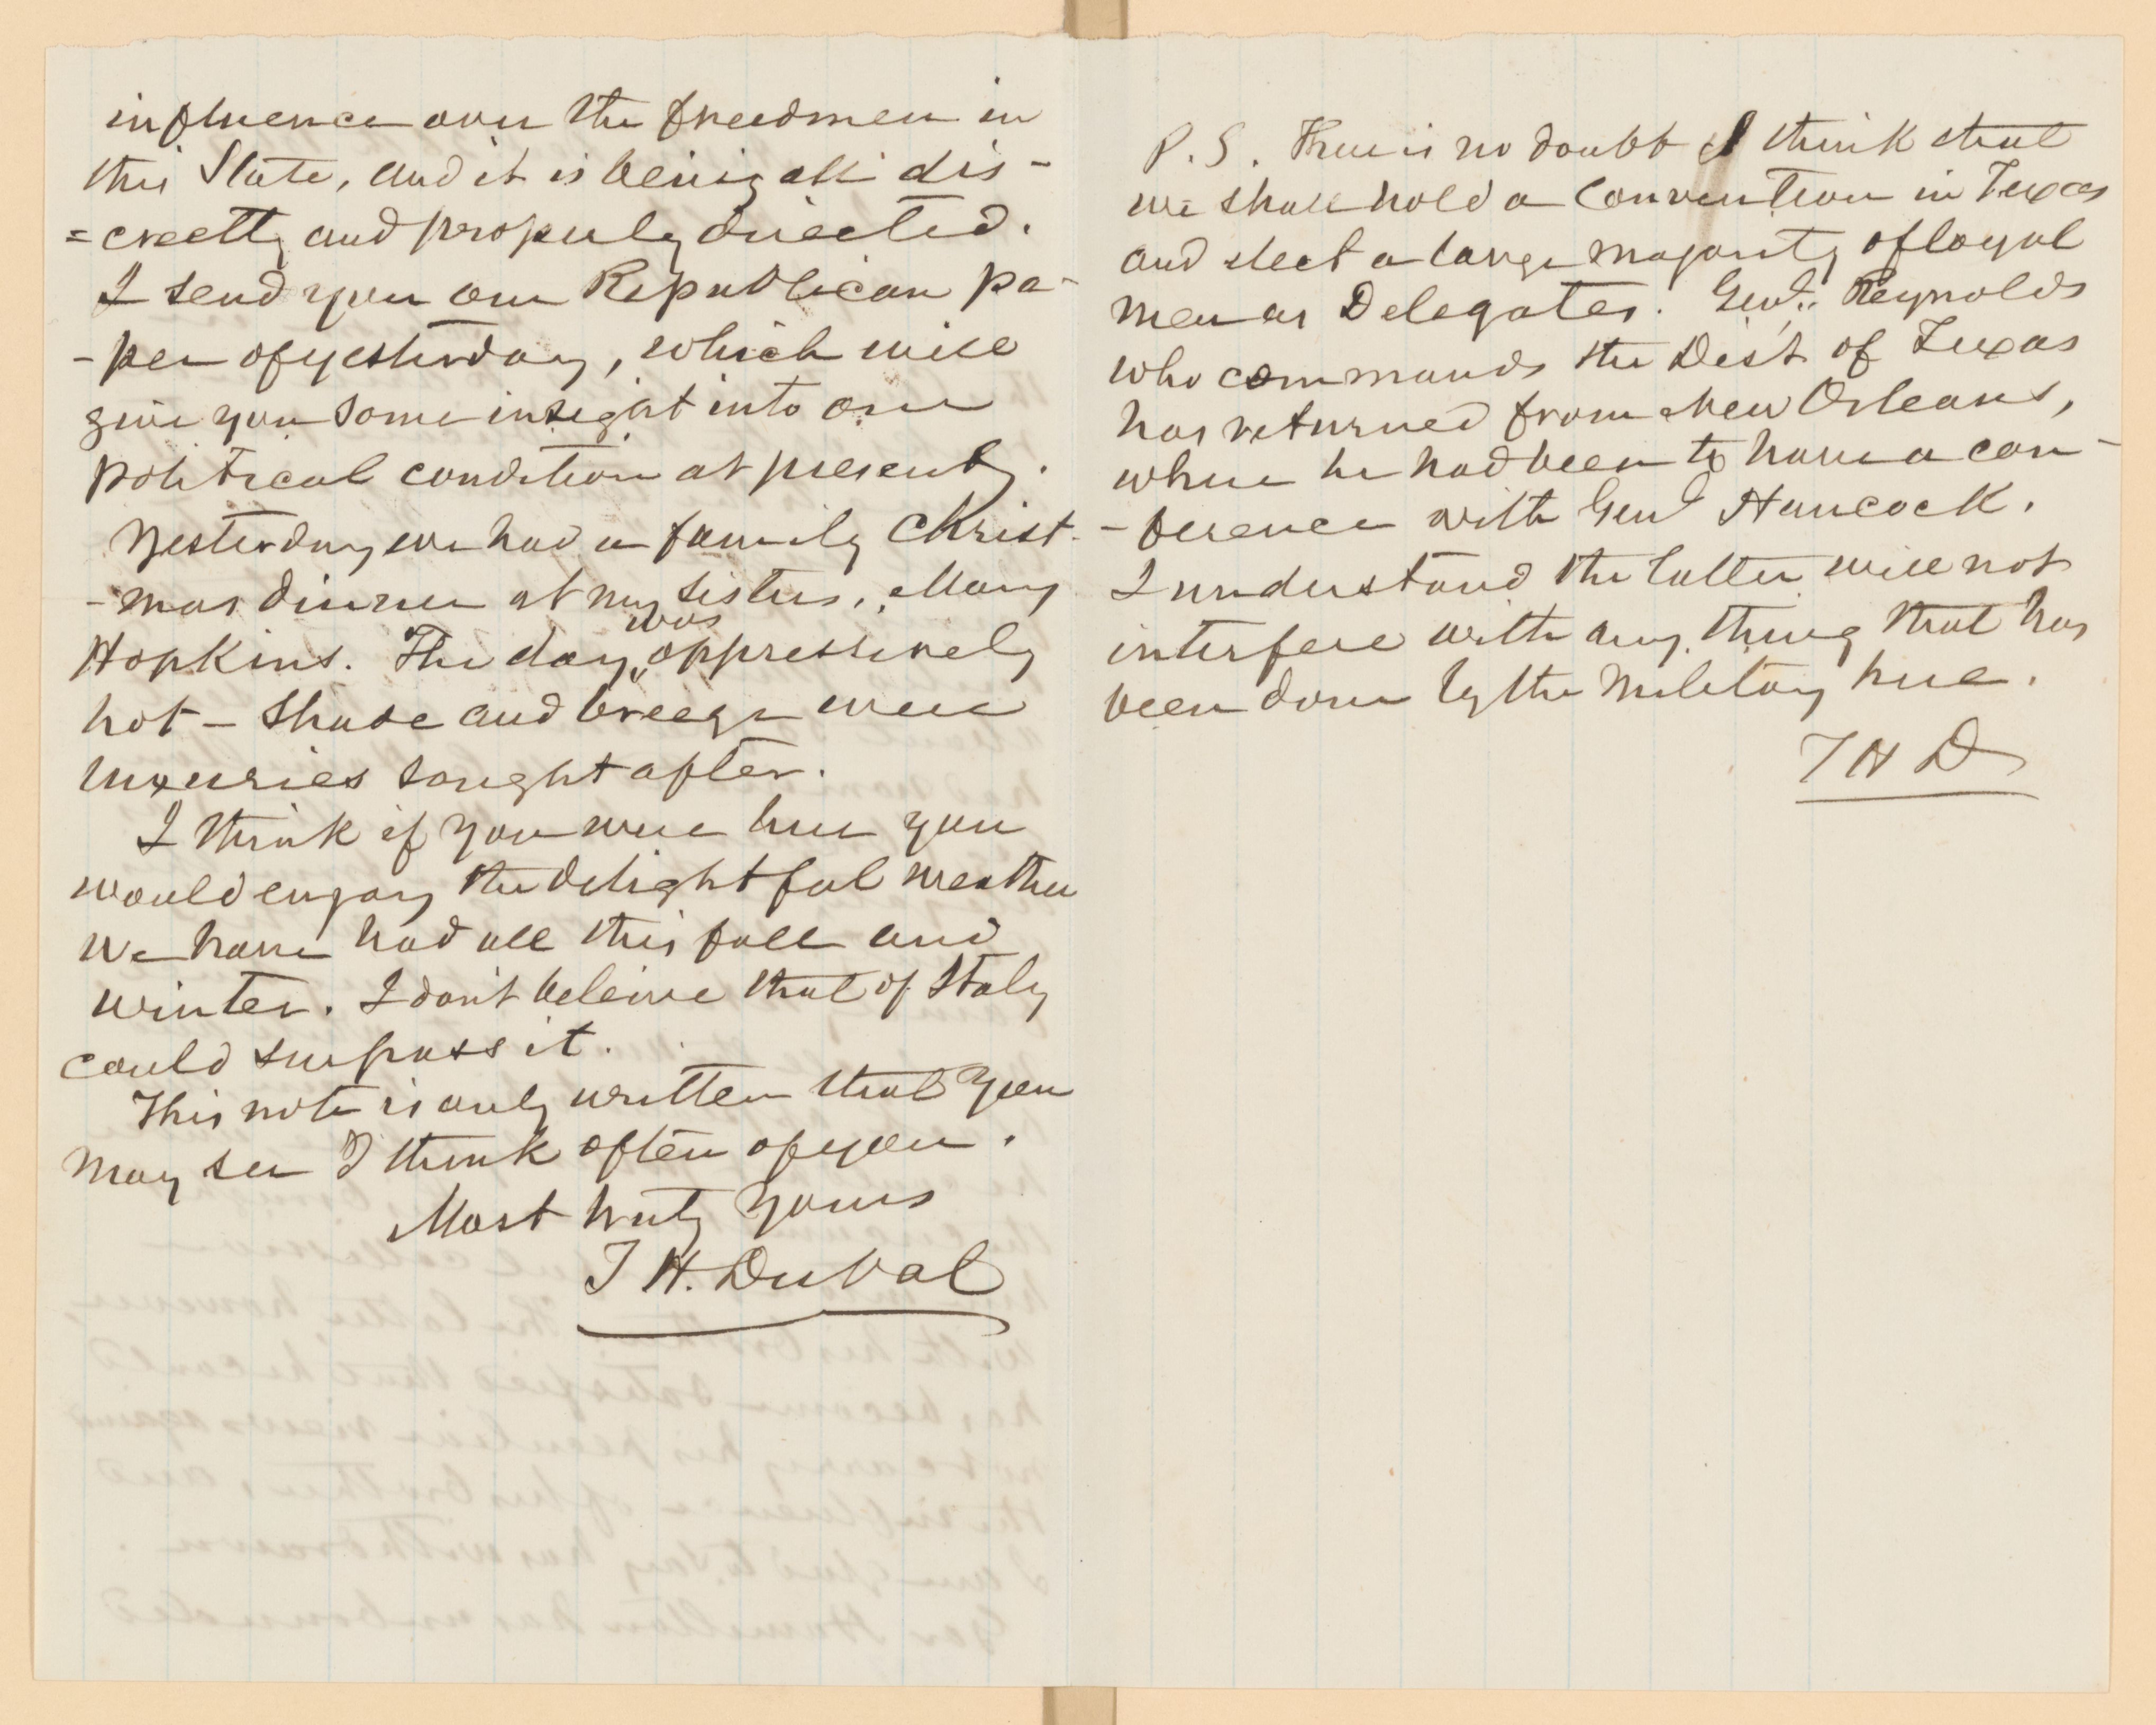 influence over the freedmen in
this State, and it is being all dis-
=creetly and properly directed.
I send you our Republican pa-
-per of yesterday, which will
give you some insight into our
political condition at present.
Yesterday we had a family Christ-
-mas dinner at my sisters, Mary
was
Hopkins. The day oppressively
hot - Shade and breeze were
luxuries sought after.
I think if you were here you
would enjoy the delightful weather
we have had all this fall and
winter. I don't beleive that of Italy
could surpass it.
This note is only written that you
may see I think often of you.
Most truly Yours
T H. DuVal
P.S. There is no doubt I think that
we shall hold a Convention in Texas
and elect a large majority of loyal
men as Delegates. Genl. Reynolds
who commands the Dist of Texas
has returned from New Orleans,
where he had been to have a con-
-ference with Genl Hancock.
I understand the latter will not
interfere with any thing that has
been done by the military here.
T H D